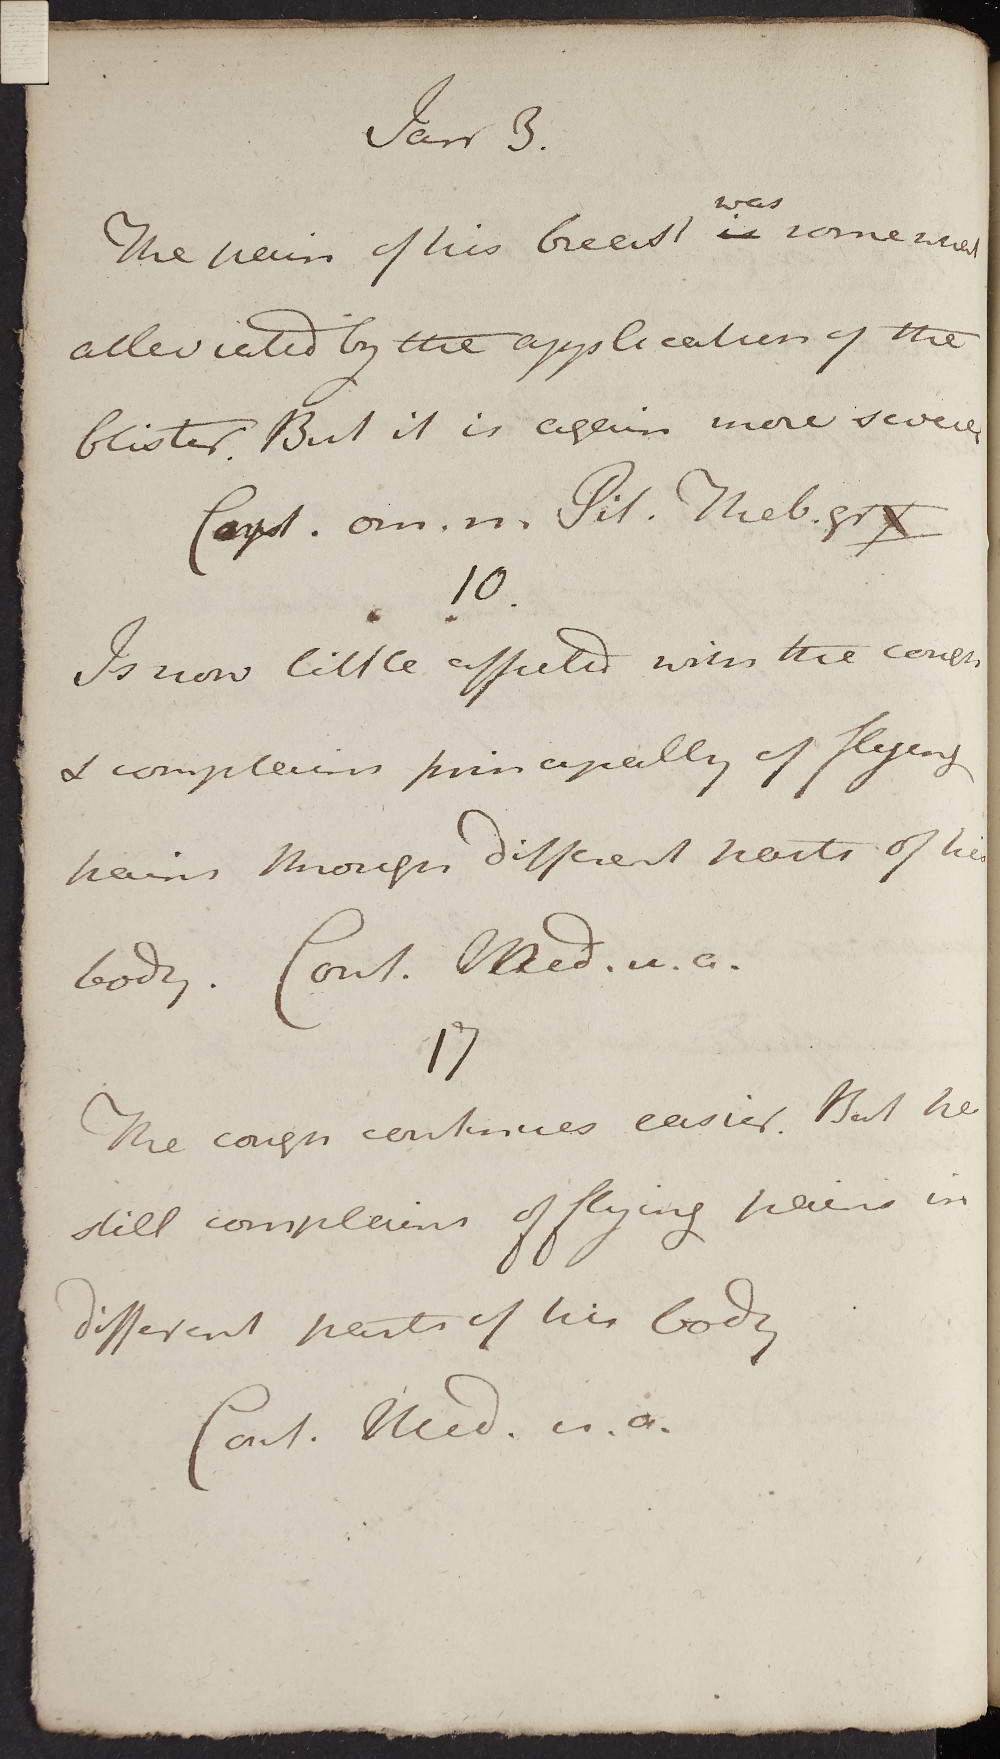 Janr 3.
The pain of his breast was is somewhat
alleviated by the application of the
blister. But it is again more severe
Capt. om. n. Pil. Theb. gr X
10.
Is now little affected with the cough
& complains principally of flying
pains through different parts of his
body. Cont. Med. u. a.
17
The cough continues easier. But he
still complains of flying pains in
different parts of his body
Cont. Med. u. a.